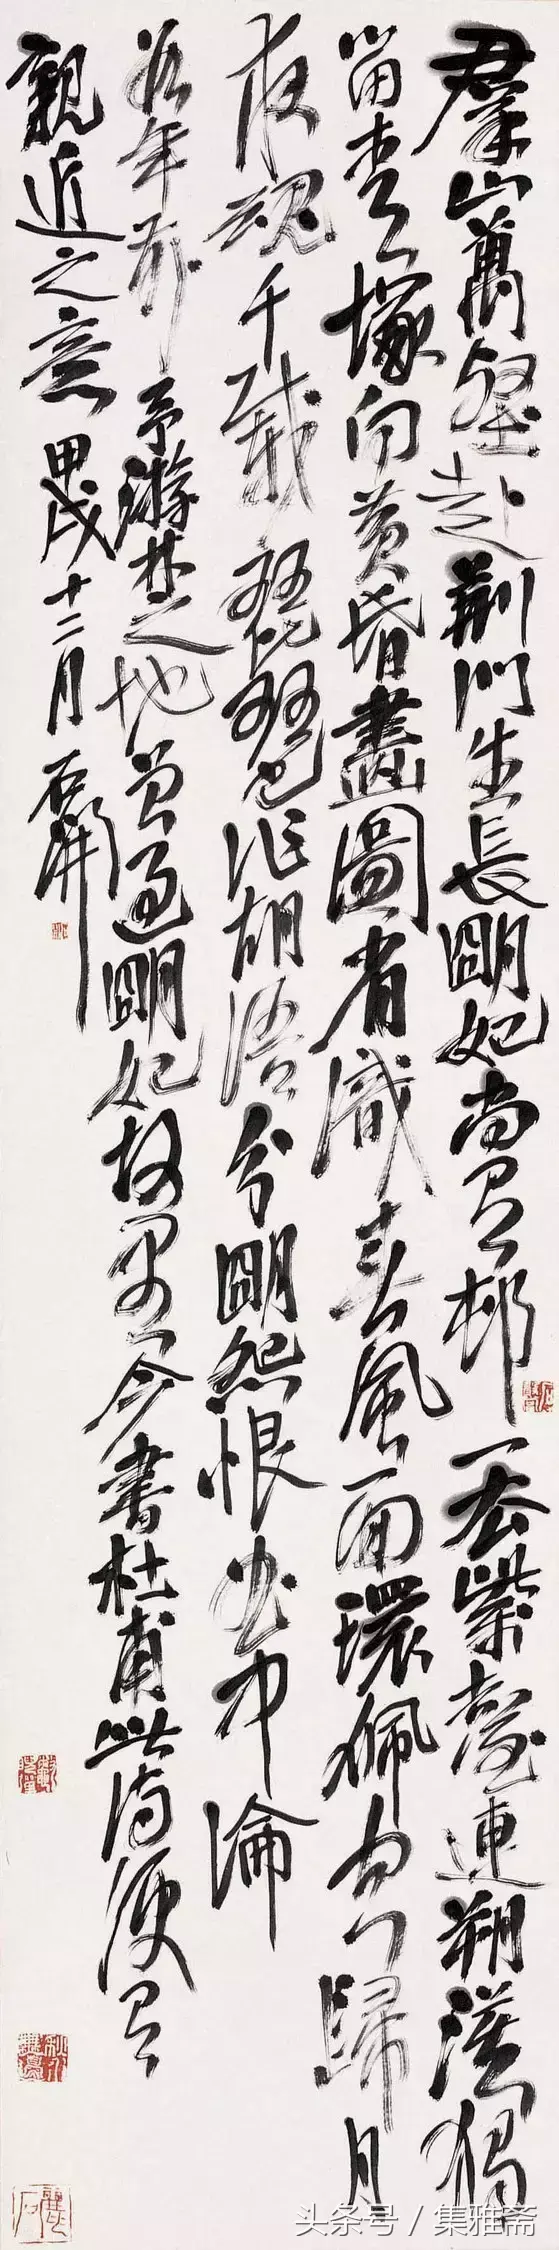 羣山萬壑赴荆門生長朙妃尚有邨一去紫臺連朔漠獨
留青塚向黄昏畫圖省識春風面環佩空歸月
夜魂千載琵琶作胡語分朙怨恨曲中論
數年前予游楚之地曾過朙妃故里今書杜甫此诗便有
親近之意甲戌十二月石開
头条号 / 集雅斋